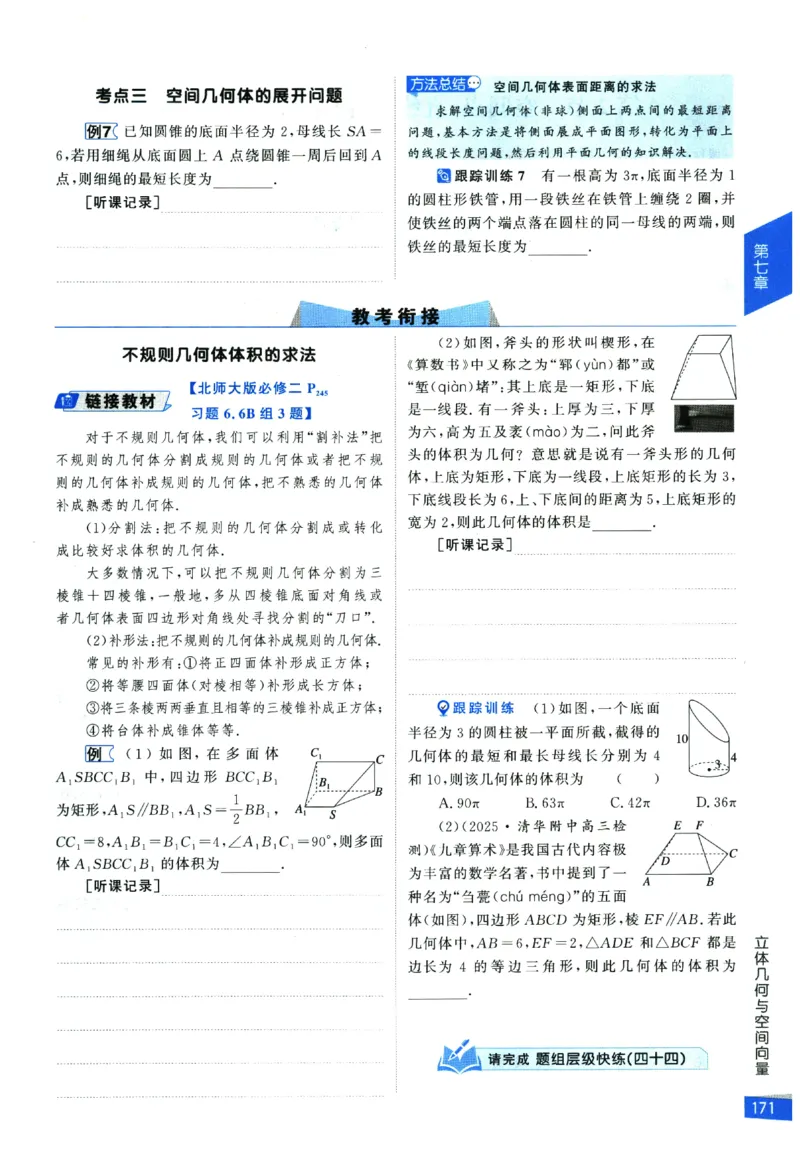 考点三 空间几何体的展开问题
例7 已知圆锥的底面半径为 2,母线长 SA=
6,若用细绳从底面圆上 A 点绕圆锥一周后回到 A
点,则细绳的最短长度为________.
[听课记录]
方法总结 空间几何体表面距离的求法
求解空间几何体(非球)侧面上两点间的最短距离
问题,基本方法是将侧面展成平面图形,转化为平面上
的线段长度问题,然后利用平面几何的知识解决.
跟踪训练 7 有一根高为 3π,底面半径为 1
的圆柱形铁管,用一段铁丝在铁管上缠绕 2 圈,并
使铁丝的两个端点落在圆柱的同一母线的两端,则
铁丝的最短长度为________.
第七章
教考衔接
不规则几何体体积的求法
链接教材
【北师大版必修二 P₂₄₅
习题 6.6B 组 3 题】
对于不规则几何体,我们可以利用“割补法”把
不规则的几何体分割成规则的几何体或者把不规
则的几何体补成规则的几何体,把不熟悉的几何体
补成熟悉的几何体.
(1)分割法:把不规则的几何体分割成或转化
成比较好求体积的几何体.
大多数情况下,可以把不规则几何体分割为三
棱锥+四棱锥,一般地,多从四棱锥底面对角线或
者几何体表面四边形对角线处寻找分割的“刀口”.
(2)补形法:把不规则的几何体补成规则的几何体.
常见的补形有:①将正四面体补形成正方体;
②将等腰四面体(对棱相等)补形成长方体;
③将三条棱两两垂直且相等的三棱锥补成正方体;
④将台体补成锥体等等.
例 (1)如图,在多面体
A₁SBCC₁B₁ 中,四边形 BCC₁B₁
为矩形,A₁S∥BB₁,A₁S=1/2BB₁,
CC₁=8,A₁B₁=B₁C₁=4,∠A₁B₁C₁=90°,则多面
体 A₁SBCC₁B₁ 的体积为________.
C₁
C
B₁
B
A₁
S
[听课记录]
(2)如图,斧头的形状叫楔形,在
《算数书》中又称之为“郓(yùn)都”或
“堑(qiàn)堵”:其上底是一矩形,下底
是一线段.有一斧头:上厚为三,下厚
为六,高为五及袤(mào)为二,问此斧
头的体积为几何?意思就是说有一斧头形的几何
体,上底为矩形,下底为一线段,上底矩形的长为 3,
下底线段长为 6,上、下底间的距离为 5,上底矩形的
宽为 2,则此几何体的体积是________.
[听课记录]
跟踪训练 (1)如图,一个底面
半径为 3 的圆柱被一平面所截,截得的
几何体的最短和最长母线长分别为 4
和 10,则该几何体的体积为 ( )
10
4
3
A.90π B.63π C.42π D.36π
(2)(2025·清华附中高三检
测)《九章算术》是我国古代内容极
为丰富的数学名著,书中提到了一
种名为“刍甍(chú méng)”的五面
体(如图),四边形 ABCD 为矩形,棱 EF∥AB.若此
几何体中,AB=6,EF=2,△ADE 和△BCF 都是
边长为 4 的等边三角形,则此几何体的体积为
________.
E
F
D
C
A
B
请完成 题组层级快练(四十四)
立体几何与空间向量
171